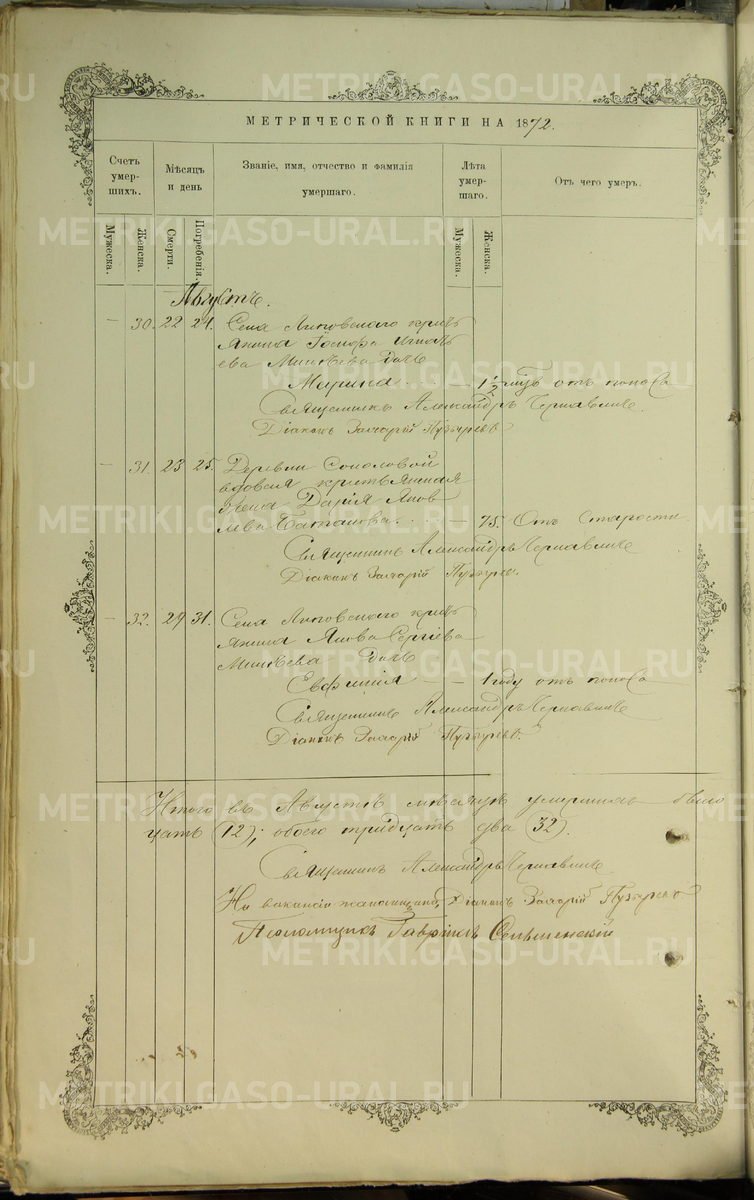 МЕТРИЧЕСКОЙ КНИГИ НА 1872.
Счетъ умер-шихъ.
Мѣсяцъ и день
Званіе, имя, отчество и фамилія умершаго.
Лѣта умер-шаго.
Отъ чего умеръ.
Мужеска.
Женска.
Смерти.
Погребенія.
Мужеска.
Женска.
Августъ.
— 30. 22 24. Села Липовскаго кресть
янина Іосифа Игнать
ева Минѣева дочь
Марина — 1½ мѣс. отъ поноса
Священникъ Александръ Чернавинъ.
Діаконъ Захарій Пузыревъ
— 31. 23 25. Деревни Соколовой
вдовая крестьянская
жена Дарія Яков
лева — 75. Отъ старости
Священникъ Александръ Чернавинъ
Діаконъ Захарій Пузыревъ.
— 32. 29 31. Села Липовскаго кресть
янина Якова Сергіева
Минѣева дочь
Евфимія — 1 году отъ поноса
Священникъ Александръ Чернавинъ
Діаконъ Захарій Пузыревъ.
Итого въ Августѣ мѣсяцѣ умершихъ было
цать (12); обоего тридцать два (32).
Священникъ Александръ Чернавинъ
На вакансіи псаломщика Діаконъ Захарій Пузыревъ
Псаломщикъ Гавріилъ
METRIKI.GASO-URAL.RU